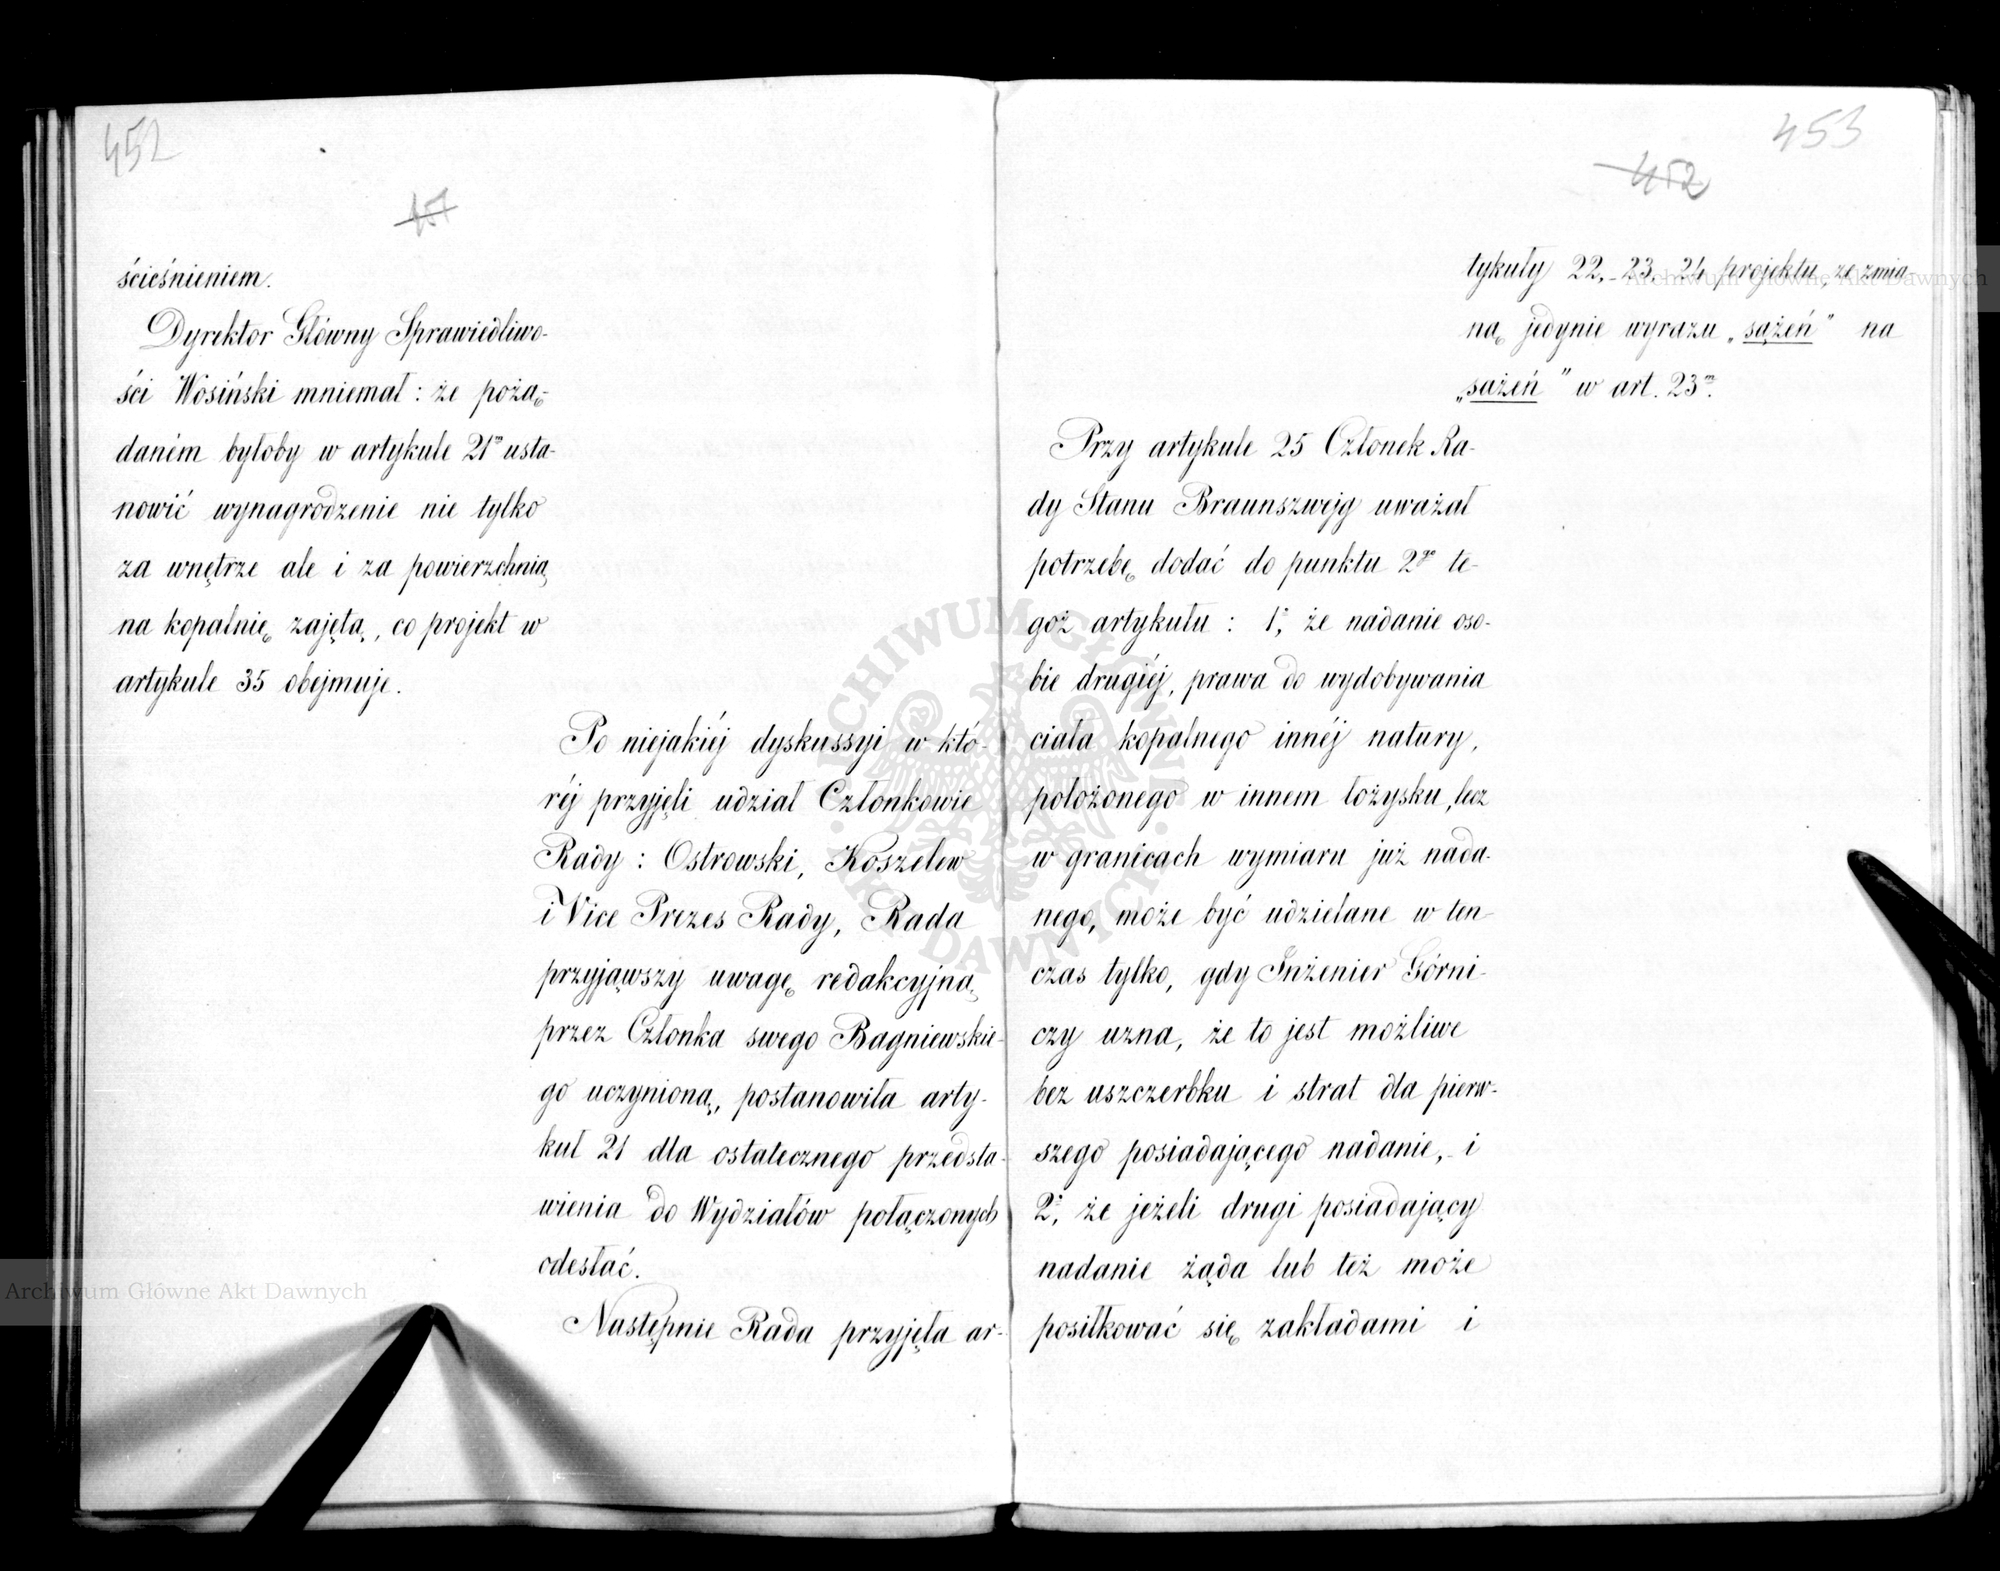 452
ścieśnieniem.
Dyrektor Główny Sprawiedliwo-
ści Wosiński mniemał: że pożą-
daném byłoby w artykule 21m usta-
nowić wynagrodzenie nie tylko
za wnętrze ale i za powierzchnią
na kopalnię zajętą, co projekt w
artykule 35 obejmuje.
Po niejakiéj dyskussyi w któ-
réj przyjęli udział Członkowie
Rady: Ostrowski, Koszelew
i Vice Prezes Rady, Rada
przyjąwszy uwagę redakcyjną
przez Członka swego Bagniewskie-
go uczynioną, postanowiła arty-
kuł 21 dla ostatecznego przedsta-
wienia do Wydziałów połączonych
odesłać.
Następnie Rada przyjęła ar-
453
452
tykuły 22, 23, 24 projektu, ze zmia-
ną jedynie wyrazu „sążeń” na
„sażeń” w art. 23m.
Przy artykule 25 Członek Ra-
dy Stanu Braunszwejg uważał
potrzebę dodać do punktu 2go te-
goż artykułu: 1o, że nadanie oso-
bie drugiéj, prawa do wydobywania
ciała kopalnego innéj natury,
położonego w innem łożysku, lecz
w granicach wymiaru już nada-
nego, może być udzielane w ten-
czas tylko, gdy Inżenier Górni-
czy uzna, że to jest możliwe
bez uszczerbku i strat dla pierw-
szego posiadającego nadanie, i
2o, że jeżeli drugi posiadający
nadanie żąda lub też może
posiłkować się zakładami i
Archiwum Główne Akt Dawnych
Archiwum Główne Akt Dawnych
ARCHIWUM GŁÓWNE AKT DAWNYCH